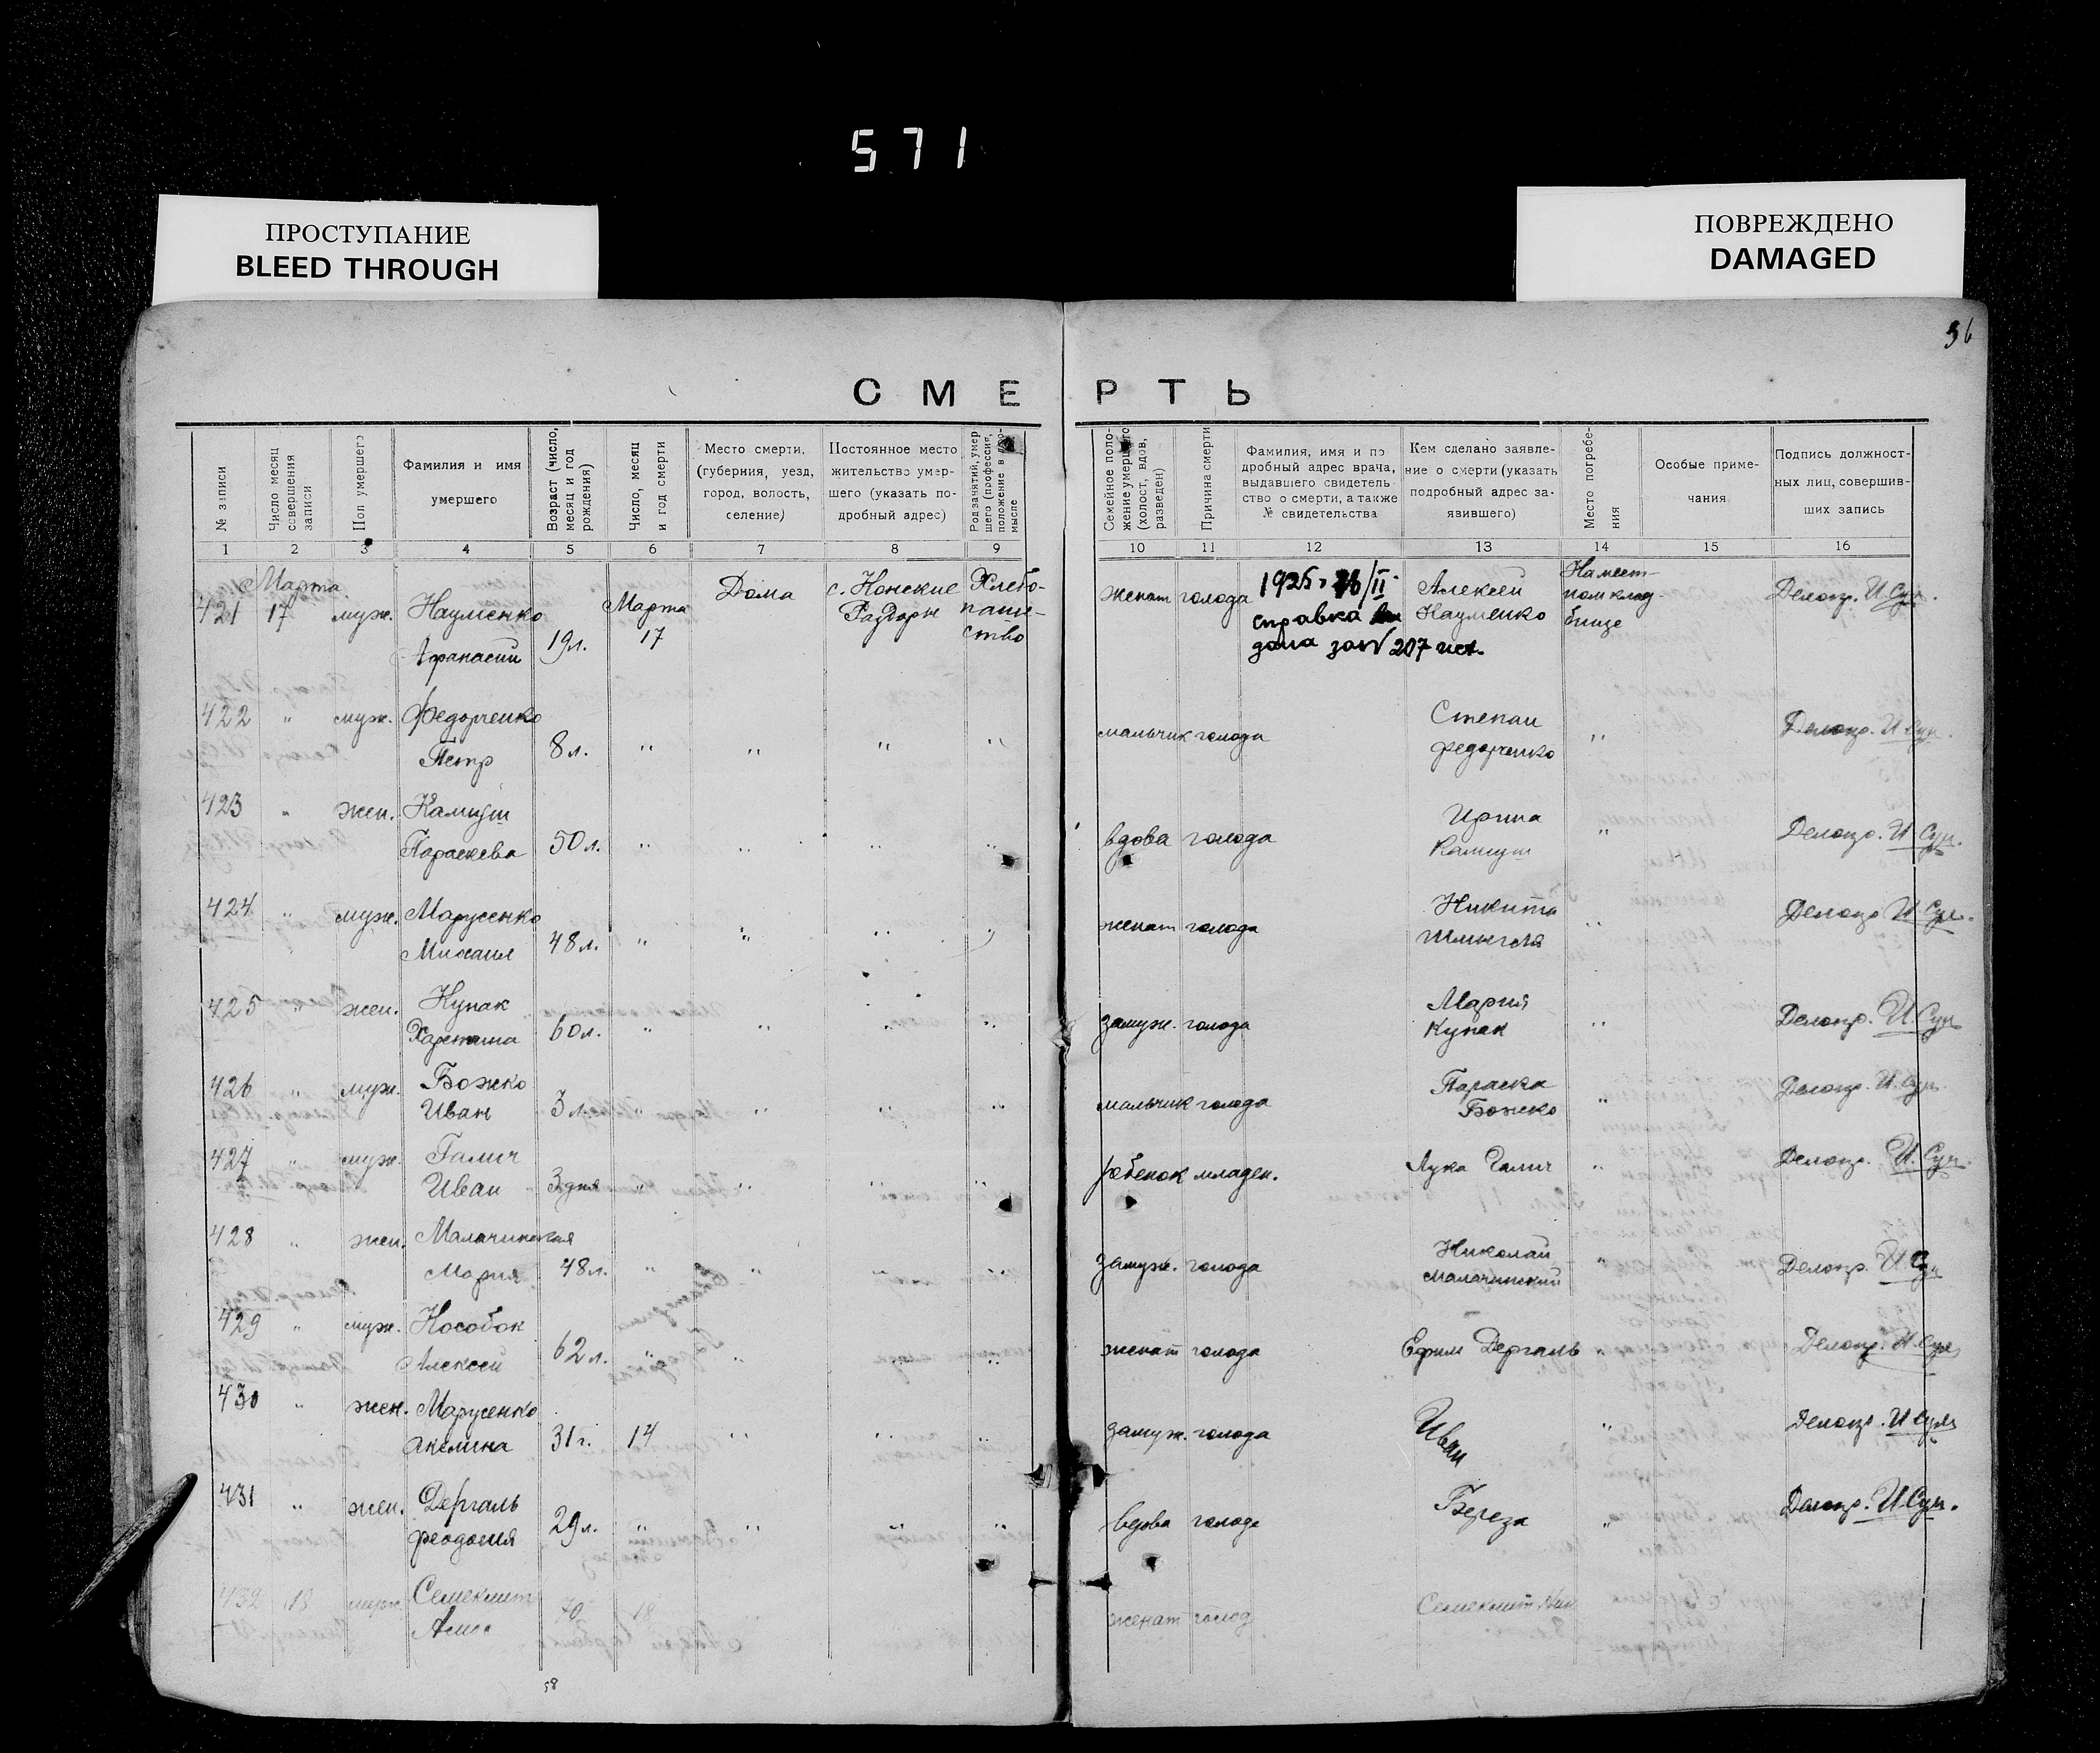 571
ПРОСТУПАНИЕ
BLEED THROUGH
ПОВРЕЖДЕНО
DAMAGED
36
СМЕРТЬ
№ записи
Число месяц совершения записи
Пол умершего
Фамилия и имя умершего
Возраст (число, месяц и год рождения)
Число, месяц и год смерти
Место смерти, (губерния, уезд, город, волость, селение)
Постоянное место жительство умершего (указать подробный адрес)
Род занятий, умершего (профессия, положение в промысле
Семейное положение умершего (холост, вдов, разведен)
Причина смерти
Фамилия, имя и подробный адрес врача, выдавшего свидетельство о смерти, а также № свидетельства
Кем сделано заявление о смерти (указать подробный адрес заявившего)
Место погребения
Особые примечания
Подпись должностных лиц, совершивших запись
1 2 3 4 5 6 7 8 9 10 11 12 13 14 15 16
Марта
421 17 муж. Науменко Афанасий 19л. Марта 17 Дома с. Конские Раздоры Хлебопашество женат голода 1925 /II справка дана за № 207 Алексей Науменко На местном кладбище Делопр. И. Сук.
422 " муж. Федорченко Петр 8л. " " " " мальчик голода Степан Федорченко " Делопр. И Сук.
423 " жен. Камуш Параскева 50л. " " " " вдова голода Ирина Камуш " Делопр. И Сук.
424 " муж. Марусенко Михаил 48л. " " " " женат голода Никита " Делопр И. Сук.
425 " жен. Купак 60л. " " " " замуж. голода Мария Купак " Делопр. И. Сук
426 " муж. Божко Иван 3л. " " " " мальчик голода Параска Божко " Делопр. И. Сук
427 " муж. Галич Иван 3 дня " " " " ребенок младен. Лука Галич " Делопр. И. Сук
428 " жен. Малачинская Мария 48л. " " " " замуж. голода Николай Малачинский " Делопр. И Сук
429 " муж. Кособок Алексей 62л. " " " " женат голода Ефим Дергаль " Делопр. И. Сук
430 " жен. Марусенко Акелина 31г. 14 " " " замуж. голода Иван " Делопр. И Сук
431 " жен. Дергаль Феодосия 29л. " " " " вдова голода Береза " Делопр. И. Сук.
432 18 муж. Семекмит 70 18 женат голод Семекмит
58